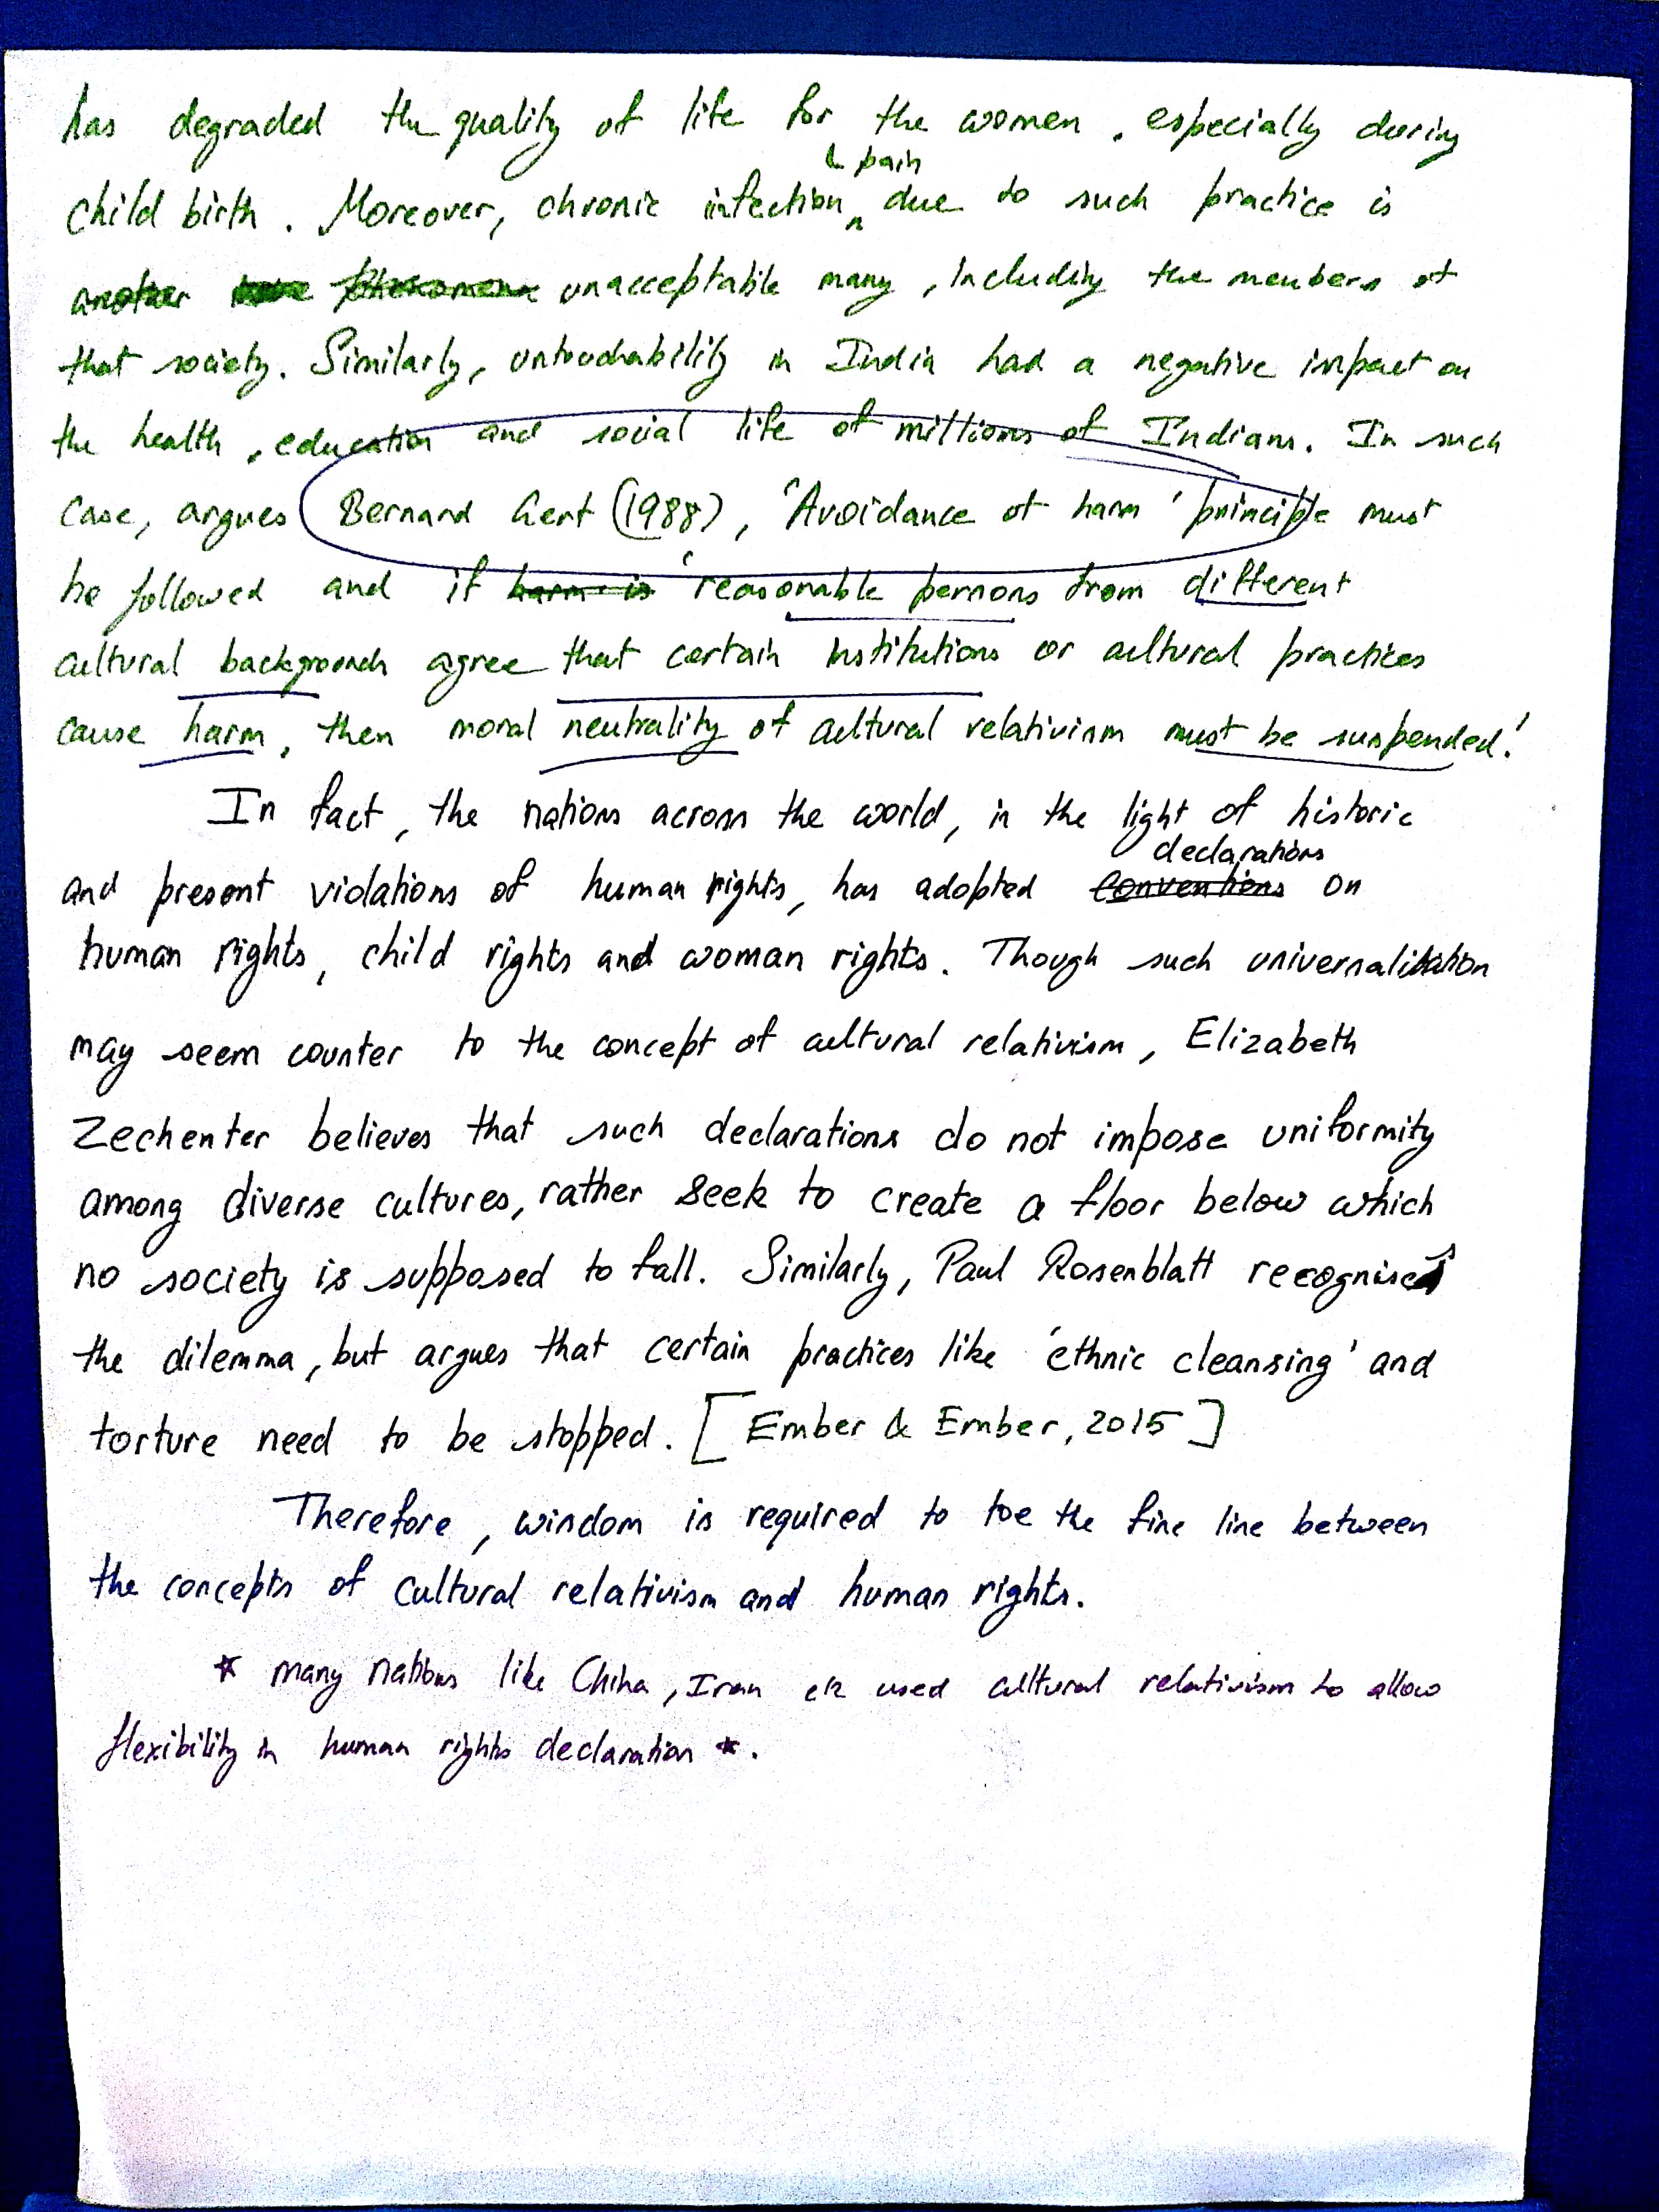 has degraded the quality of life for the women, especially during
↳ pain
child birth. Moreover, chronic infection ^ due to such practice is
another unacceptable many, including the members of
that society. Similarly, untouchability in India had a negative impact on
the health, education and social life of millions of Indians. In such
case, argues Bernard Gert (1988), 'Avoidance of harm' principle must
be followed and if harm is 'reasonable persons from different
cultural backgrounds agree that certain institutions or cultural practices
cause harm, then moral neutrality of cultural relativism must be suspended!
In fact, the nations across the world, in the light of historic
declarations
and present violations of human rights, has adopted conventions on
human rights, child rights and woman rights. Though such universalisation
may seem counter to the concept of cultural relativism, Elizabeth
Zechenter believes that such declarations do not impose uniformity
among diverse cultures, rather seek to create a floor below which
no society is supposed to fall. Similarly, Paul Rosenblatt recognises
the dilemma, but argues that certain practices like 'ethnic cleansing' and
torture need to be stopped. [Ember & Ember, 2015]
Therefore, wisdom is required to toe the fine line between
the concepts of cultural relativism and human rights.
* many nations like China, Iran etc used cultural relativism to allow
flexibility in human rights declaration *.